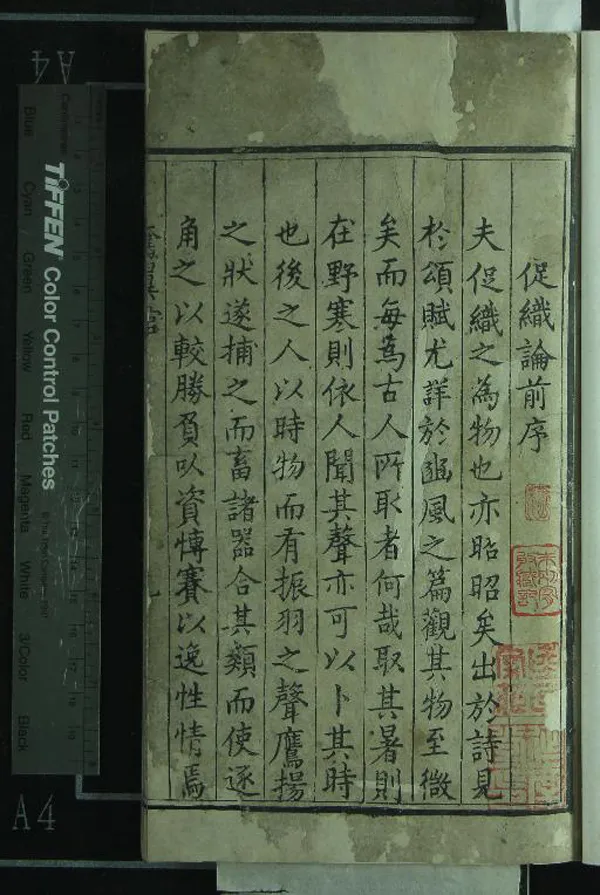 促織論前序
夫促織之為物也亦昭昭矣出於詩見
於頌賦尤詳於豳風之篇觀其物至微
矣而每為古人所取者何哉取其暑則
在野寒則依人聞其聲亦可以卜其時
也後之人以時物而有振羽之聲鷹揚
之狀遂捕之而畜諸器合其類而使逐
角之以較勝負以資愽賽以逸性情焉
TIFFEN Color Control Patches
© The Tiffen Company, 2007
Centimetres
Blue
Cyan
Green
Yellow
Red
Magenta
White
3/Color
Black
A4
A4